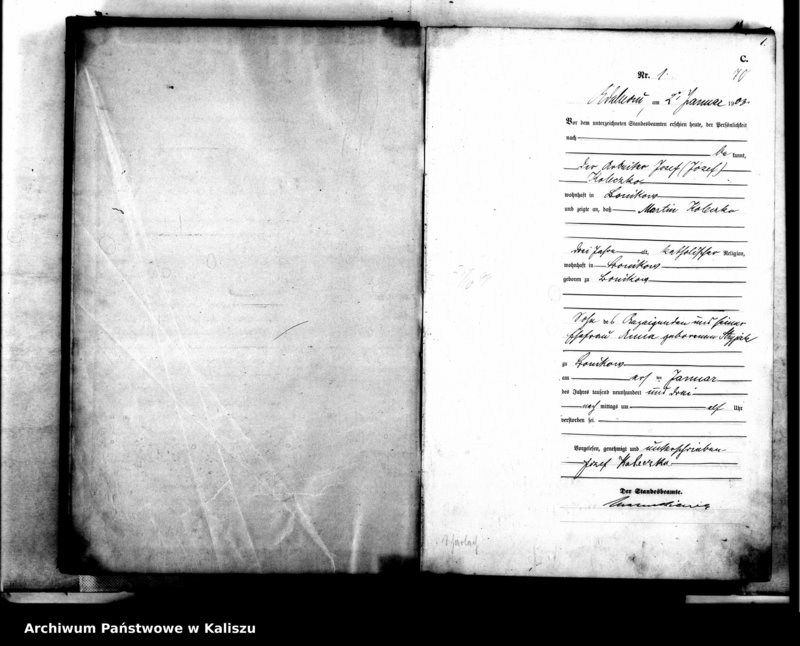 1.
C.
Nr. 1.
am 2. Januar 1903.
Vor dem unterzeichneten Standesbeamten erschien heute, der Persönlichkeit
nach
be kannt,
der Arbeiter Josef (Józef)
Koleczka
wohnhaft in Bonikow
und zeigte an, daß Martin Koleczka
drei Jahre alt, katholischer Religion,
wohnhaft in Bonikow
geboren zu Bonikow
Sohn des Anzeigenden und seiner
Ehefrau Anna geborenen
zu Bonikow
am ersten Januar
des Jahres tausend neunhundert und drei
nach mittags um elf Uhr
verstorben sei.
Vorgelesen, genehmigt und unterschrieben
Józef Koleczka
Der Standesbeamte.
Archiwum Państwowe w Kaliszu